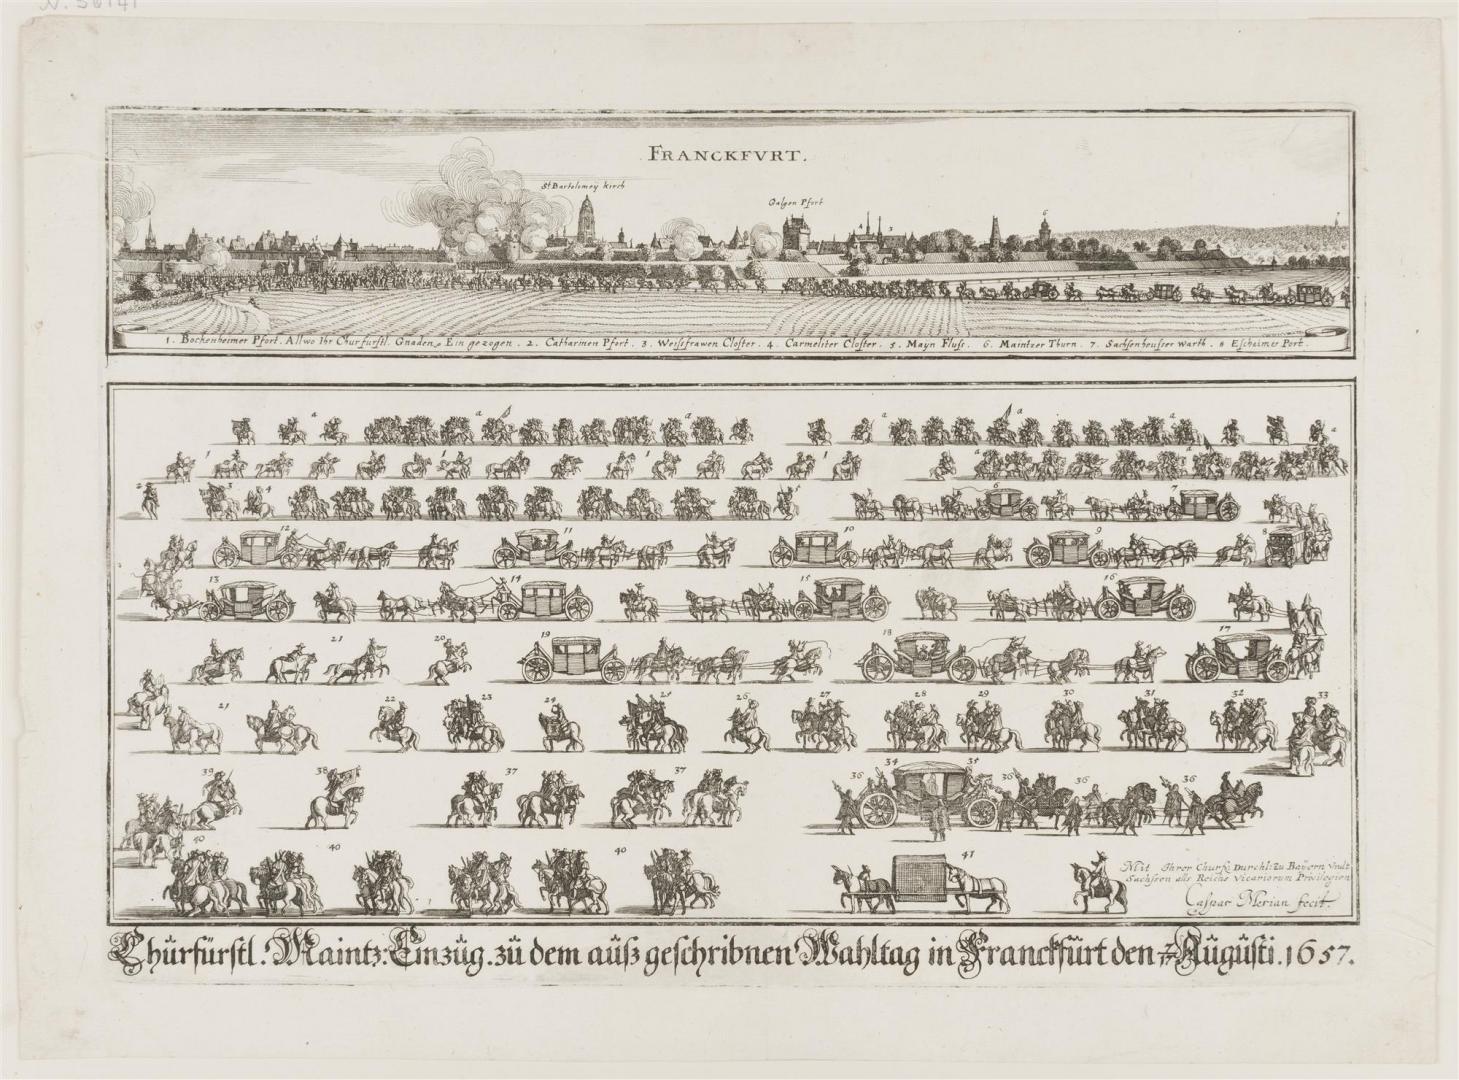 N. 50141
FRANCKFVRT.
St Bartolomey Kirch
Galgen Pfort
1. Bockenheimer Pfort. Allwo Ihr Churfurstl. Gnaden. Ein gezogen. 2. Catharinen Pfort. 3. Weissfrawen Closter. 4. Carmeliter Closter. 5. Mayn Fluss. 6. Maintzer Thurn. 7. Sachsenheusser Warth. 8 Escheimer Port.
a a a a a a a
1 1 1 1 a a
2 3 4 5 6 7
12 11 10 9 8
13 14 15 16
21 20 19 18 17
21 22 23 24 25 26 27 28 29 30 31 32 33
39 38 37 37 36 34 35 36 36 36
40 40 40 41
Mit Ihrer Churf. Durchl. zu Bayern vndt
Sachssen als Reichs Vicariorum Privilegien
Caspar Merian fecit.
Chürfürstl. Maintz: Einzüg. zü dem aüsz geschribnen Wahltag in Franckfürt den 7/17 Aügüsti. 1657.